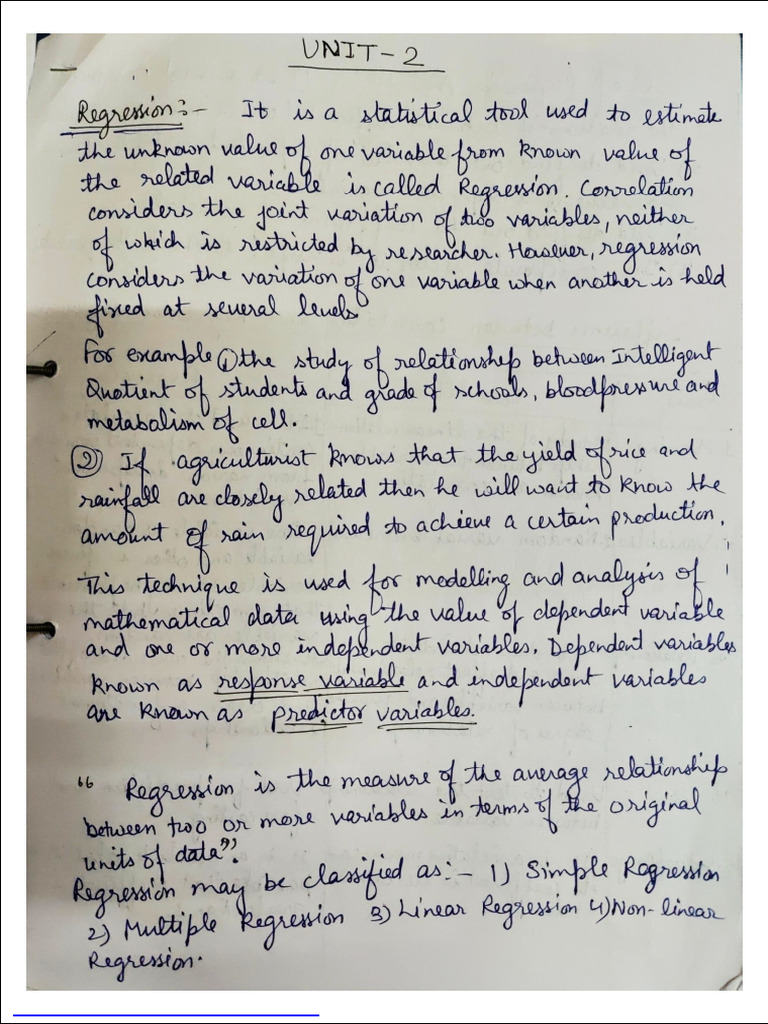 UNIT-2
Regression:- It is a statistical tool used to estimate
the unknown value of one variable from known value of
the related variable is called Regression. Correlation
considers the joint variation of two variables, neither
of which is restricted by researcher. However, regression
considers the variation of one variable when another is held
fixed at several levels.
For example ① the study of relationship between Intelligent
Quotient of students and grade of schools, bloodpressure and
metabalism of cell.
② If agriculturist knows that the yield of rice and
rainfall are closely related then he will want to know the
amount of rain required to achieve a certain production.
This technique is used for modelling and analysis of
mathematical data using the value of dependent variable
and one or more independent variables. Dependent variables
known as response variable and independent variables
are known as predictor variables.
“ Regression is the measure of the average relationship
between two or more variables in terms of the original
units of data”.
Regression may be classified as:- 1) Simple Regression
2) Multiple Regression 3) Linear Regression 4) Non-linear
Regression.